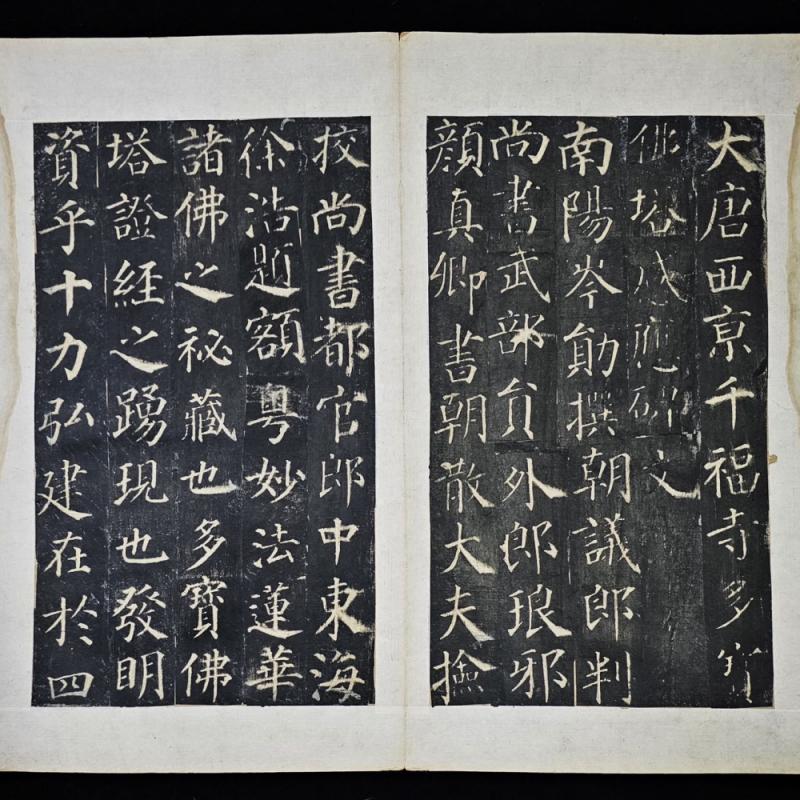 大唐西京千福寺多寶
佛塔感應碑文
南陽岑勛撰朝議郎判
尚書武部員外郎琅邪
顏真卿書朝散大夫撿
挍尚書都官郎中東海
徐浩題額粵妙法蓮華
諸佛之祕藏也多寶佛
塔證經之踴現也發明
資乎十力弘建在於四